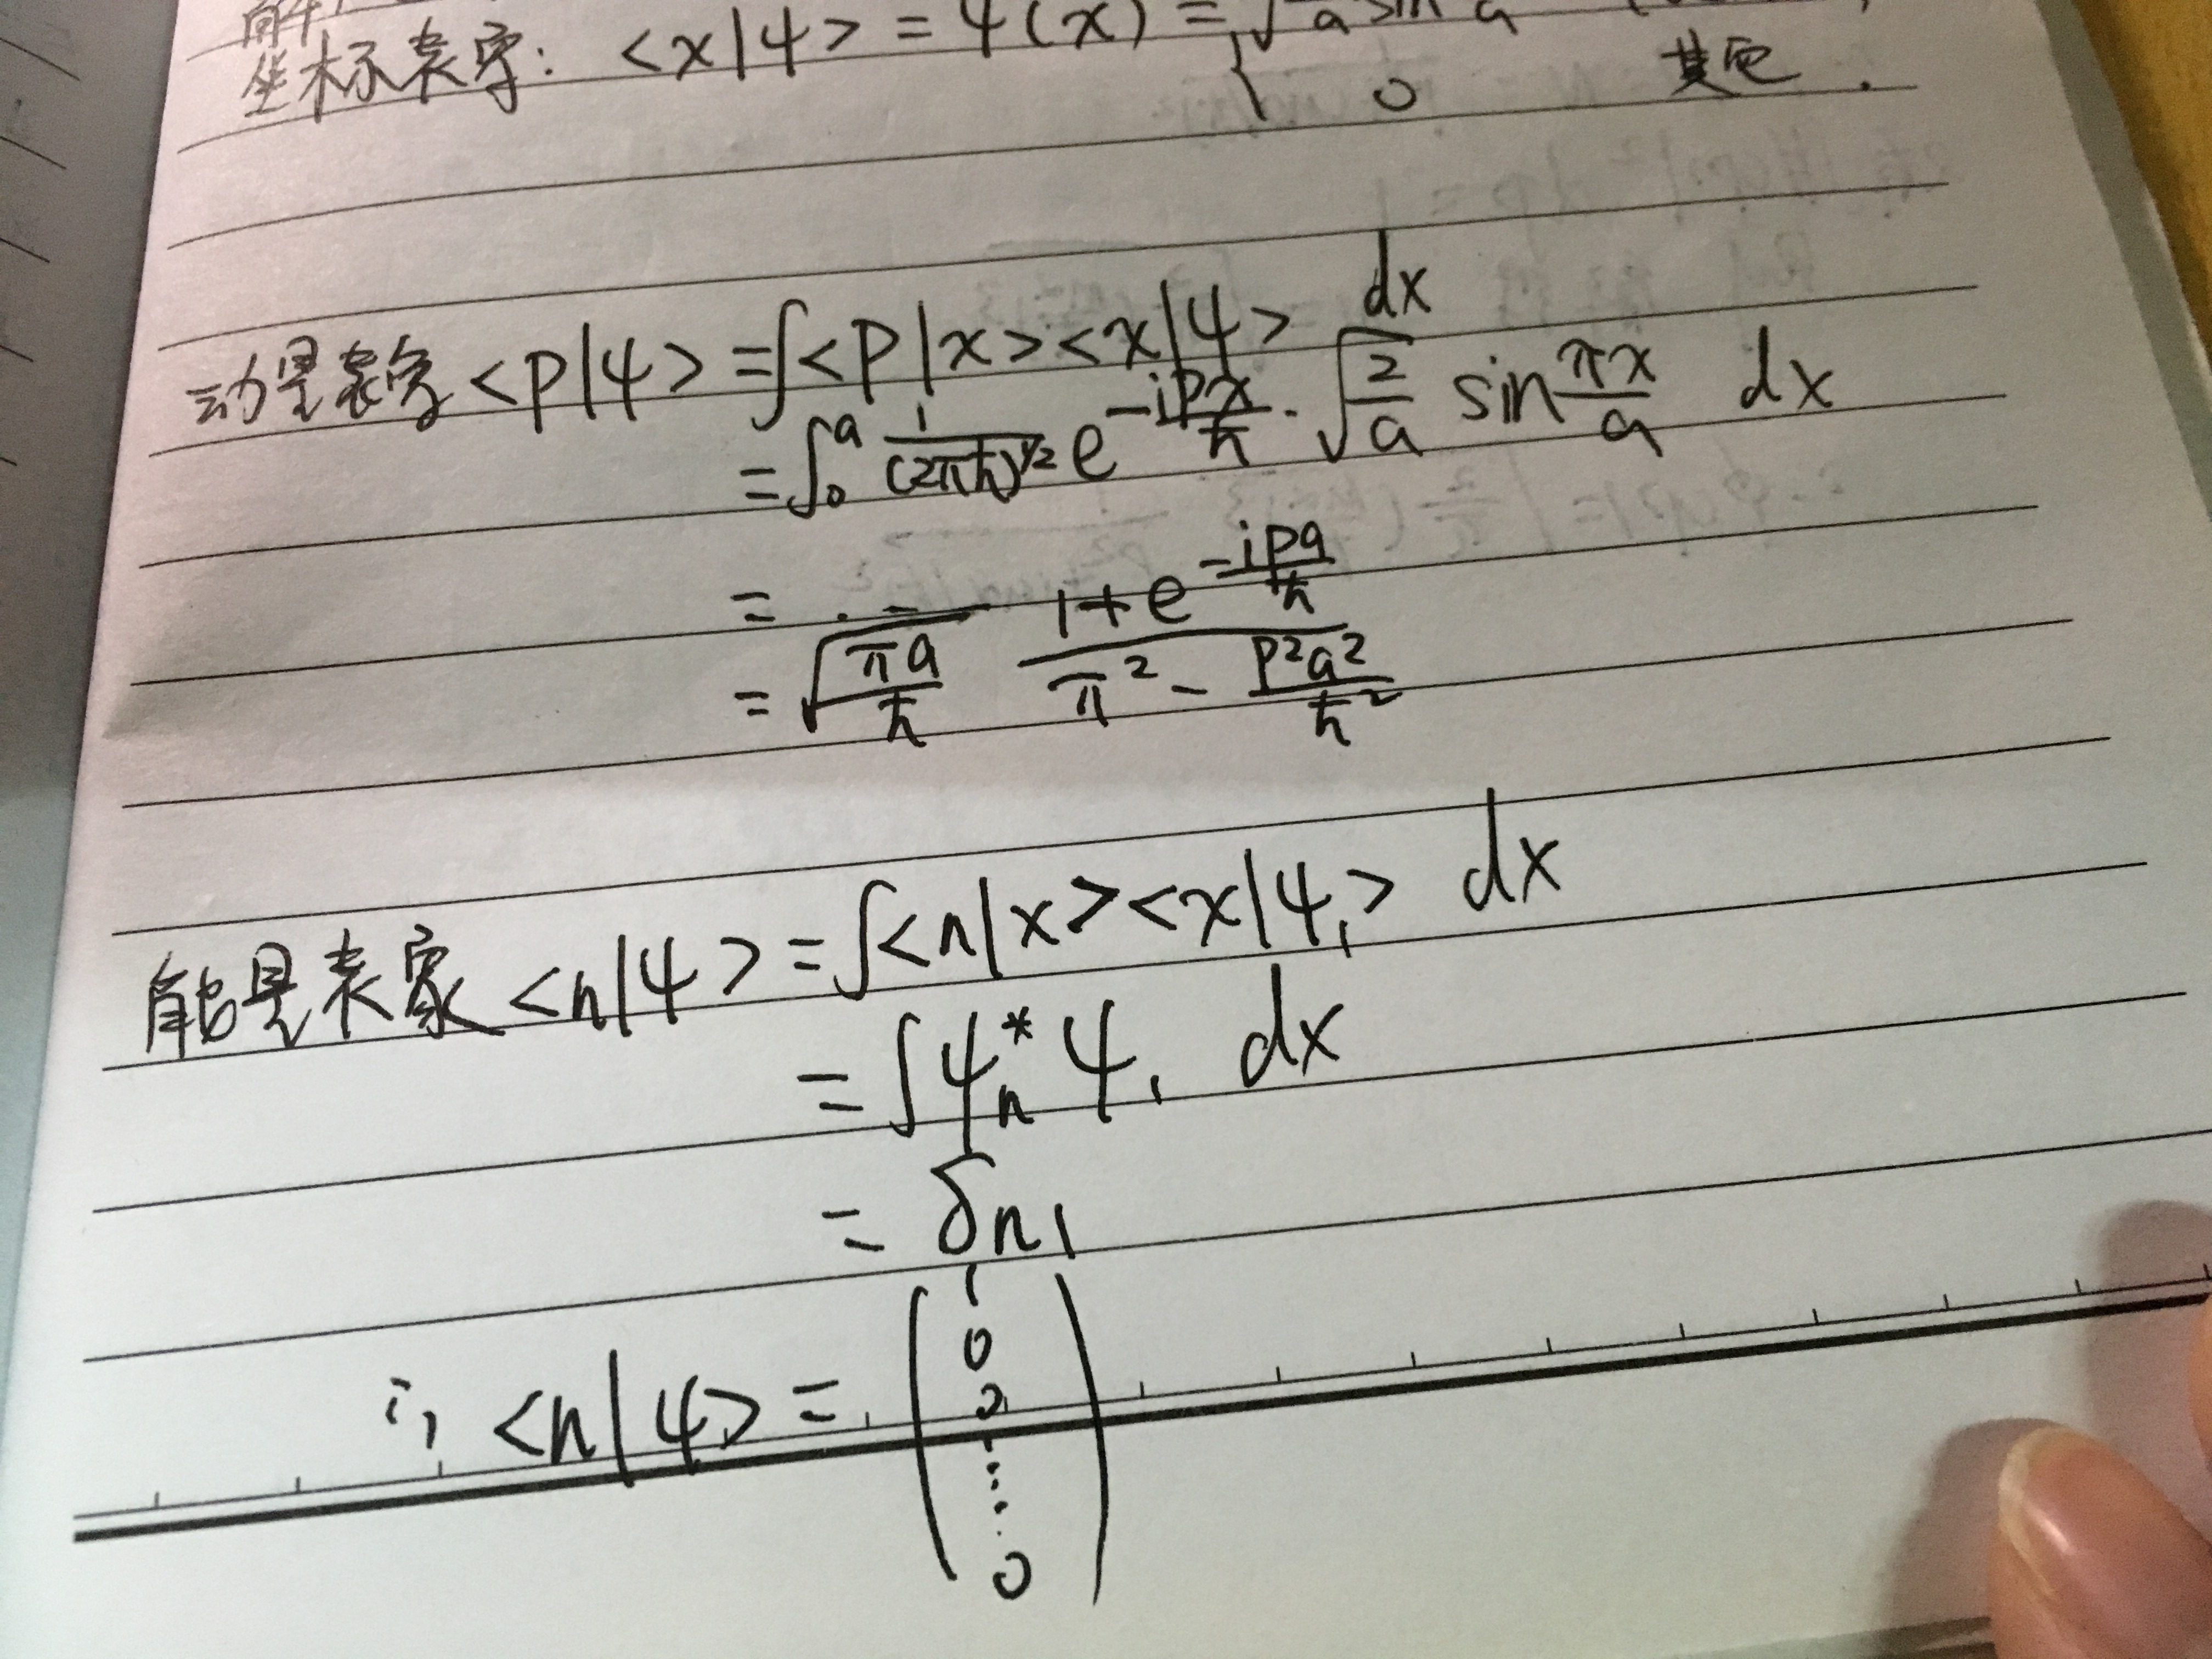 坐标表象: <x|ψ> = ψ(x) = { √(2/a) sin a
0 其它.
动量表象 <p|ψ> = ∫<p|x><x|ψ> dx
= ∫₀ᵃ 1/(2πħ)^{1/2} e^{-ipx/ħ} · √(2/a) sin πx/a dx
= · –
= √(πa/ħ) (1+e^{-ipa/ħ})/(π² - p²a²/ħ²)
能量表象 <n|ψ> = ∫<n|x><x|ψ₁> dx
= ∫ψₙ* ψ₁ dx
= δn1
∴ <n|ψ> = (1 0 0 ⋮ 0)